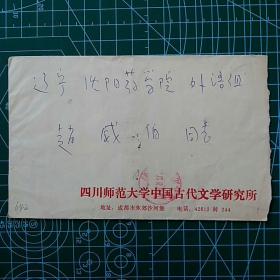 辽宁 沈阳药学院 外语组
赵 威 伯 同志
四川师范大学中国古代文学研究所
地址：成都市东郊沙河堡 电话：42613 转 244